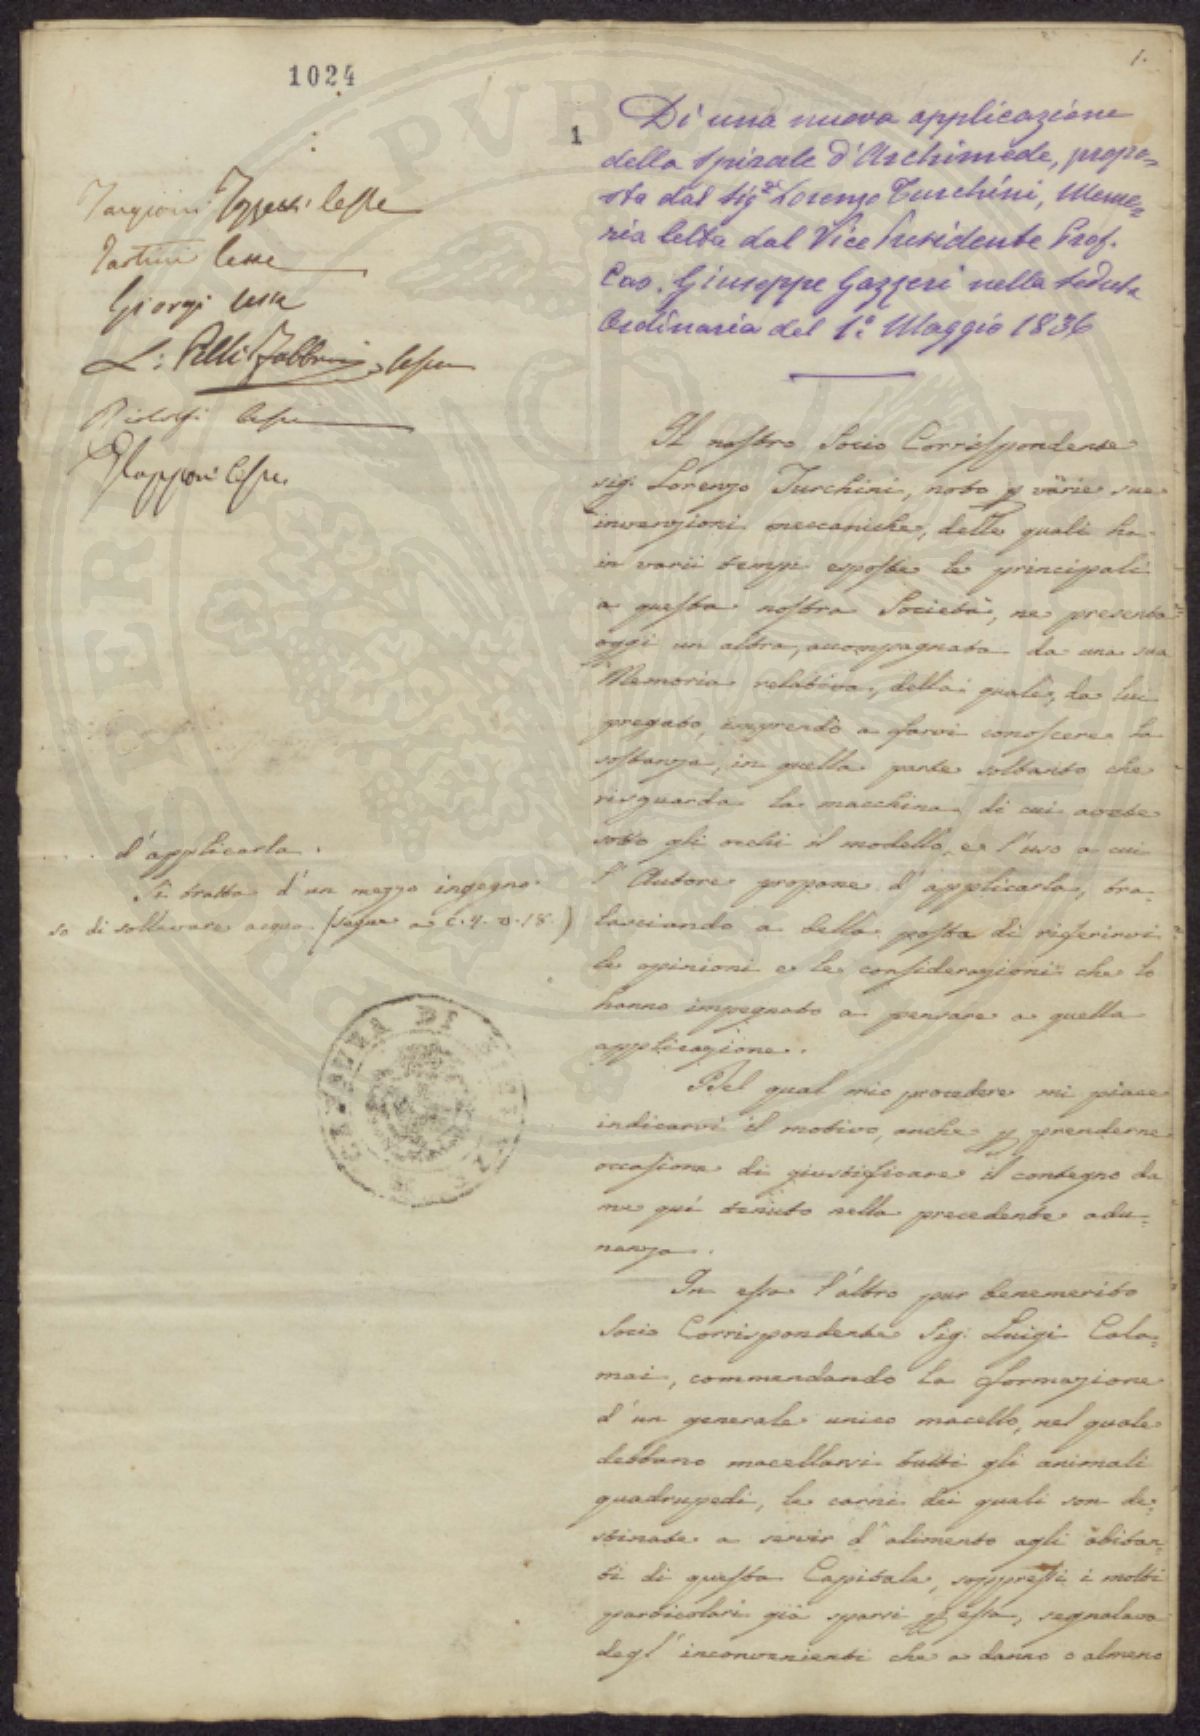 1024
1.
1
Di una nuova applicazione
della spirale d'Archimede, propo=
sta dal Sigr. Lorenzo Turchini, Memo=
ria letta dal Vice Presidente Prof.
Cav. Giuseppe Gazzeri nella seduta
Ordinaria del 1º Maggio 1836
Targioni Tozzetti lesse
Tartini lesse
Giorgi lesse
Ridolfi lesse
GCapponi lesse
Il nostro Socio Corrispondente
sig. Lorenzo Turchini, noto p varie sue
invenzioni meccaniche, delle quali ha
in varii tempi esposte le principali
a questa nostra Società, ne presenta
oggi un altra, accompagnata da una sua
Memoria relativa, della quale, da lui
pregato, imprendo a farvi conoscere la
sostanza, in quella parte soltanto che
risguarda la macchina di cui avete
sotto gli occhi il modello, e l'uso a cui
l'Autore propone d'applicarla, tra=
lasciando a bella posta di riferirvi
le opinioni e le considerazioni che lo
hanno impegnato a pensare a quella
applicazione.
.... d'applicarla.
Si tratta d'un mezzo ingegno=
so di sollevare acqua (segue a c. 4. v. 18.)
Del qual mio procedere mi piace
indicarvi il motivo, anche p prenderne
occasione di giustificare il contegno da
me quì tenuto nella precedente adu=
nanza.
In essa l'altro pur benemerito
Socio Corrispondente Sig. Luigi Cala=
mai, commendando la formazione
d'un generale unico macello, nel quale
debbano macellarvi tutti gli animali
quadrupedi, le carni dei quali son de=
stinate a servir d'alimento agli abitan=
ti di questa Capitale, soppressi i molti
particolari già sparsi p essa, segnalava
degl'inconvenienti che a danno o almeno